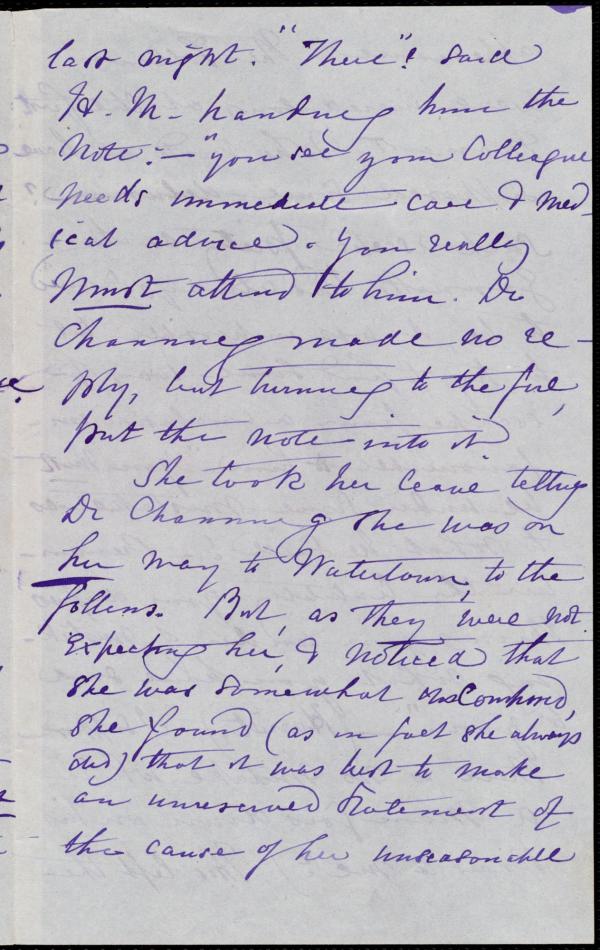 last night. "There"! said
H. M. handing him the
Note:— "you see your Colleague
needs immediate care & med-
ical advice. You really
must attend to him. Dr
Channing made no re-
ply, but turning to the fire,
put the note into it
She took her leave telling
Dr Channing she was on
her way to Watertown, to the
Follens. But, as they were not
expecting her, & noticed that
she was somewhat discomposed,
she found (as in fact she always
did) that it was best to make
an unreserved statement of
the cause of her unseasonable